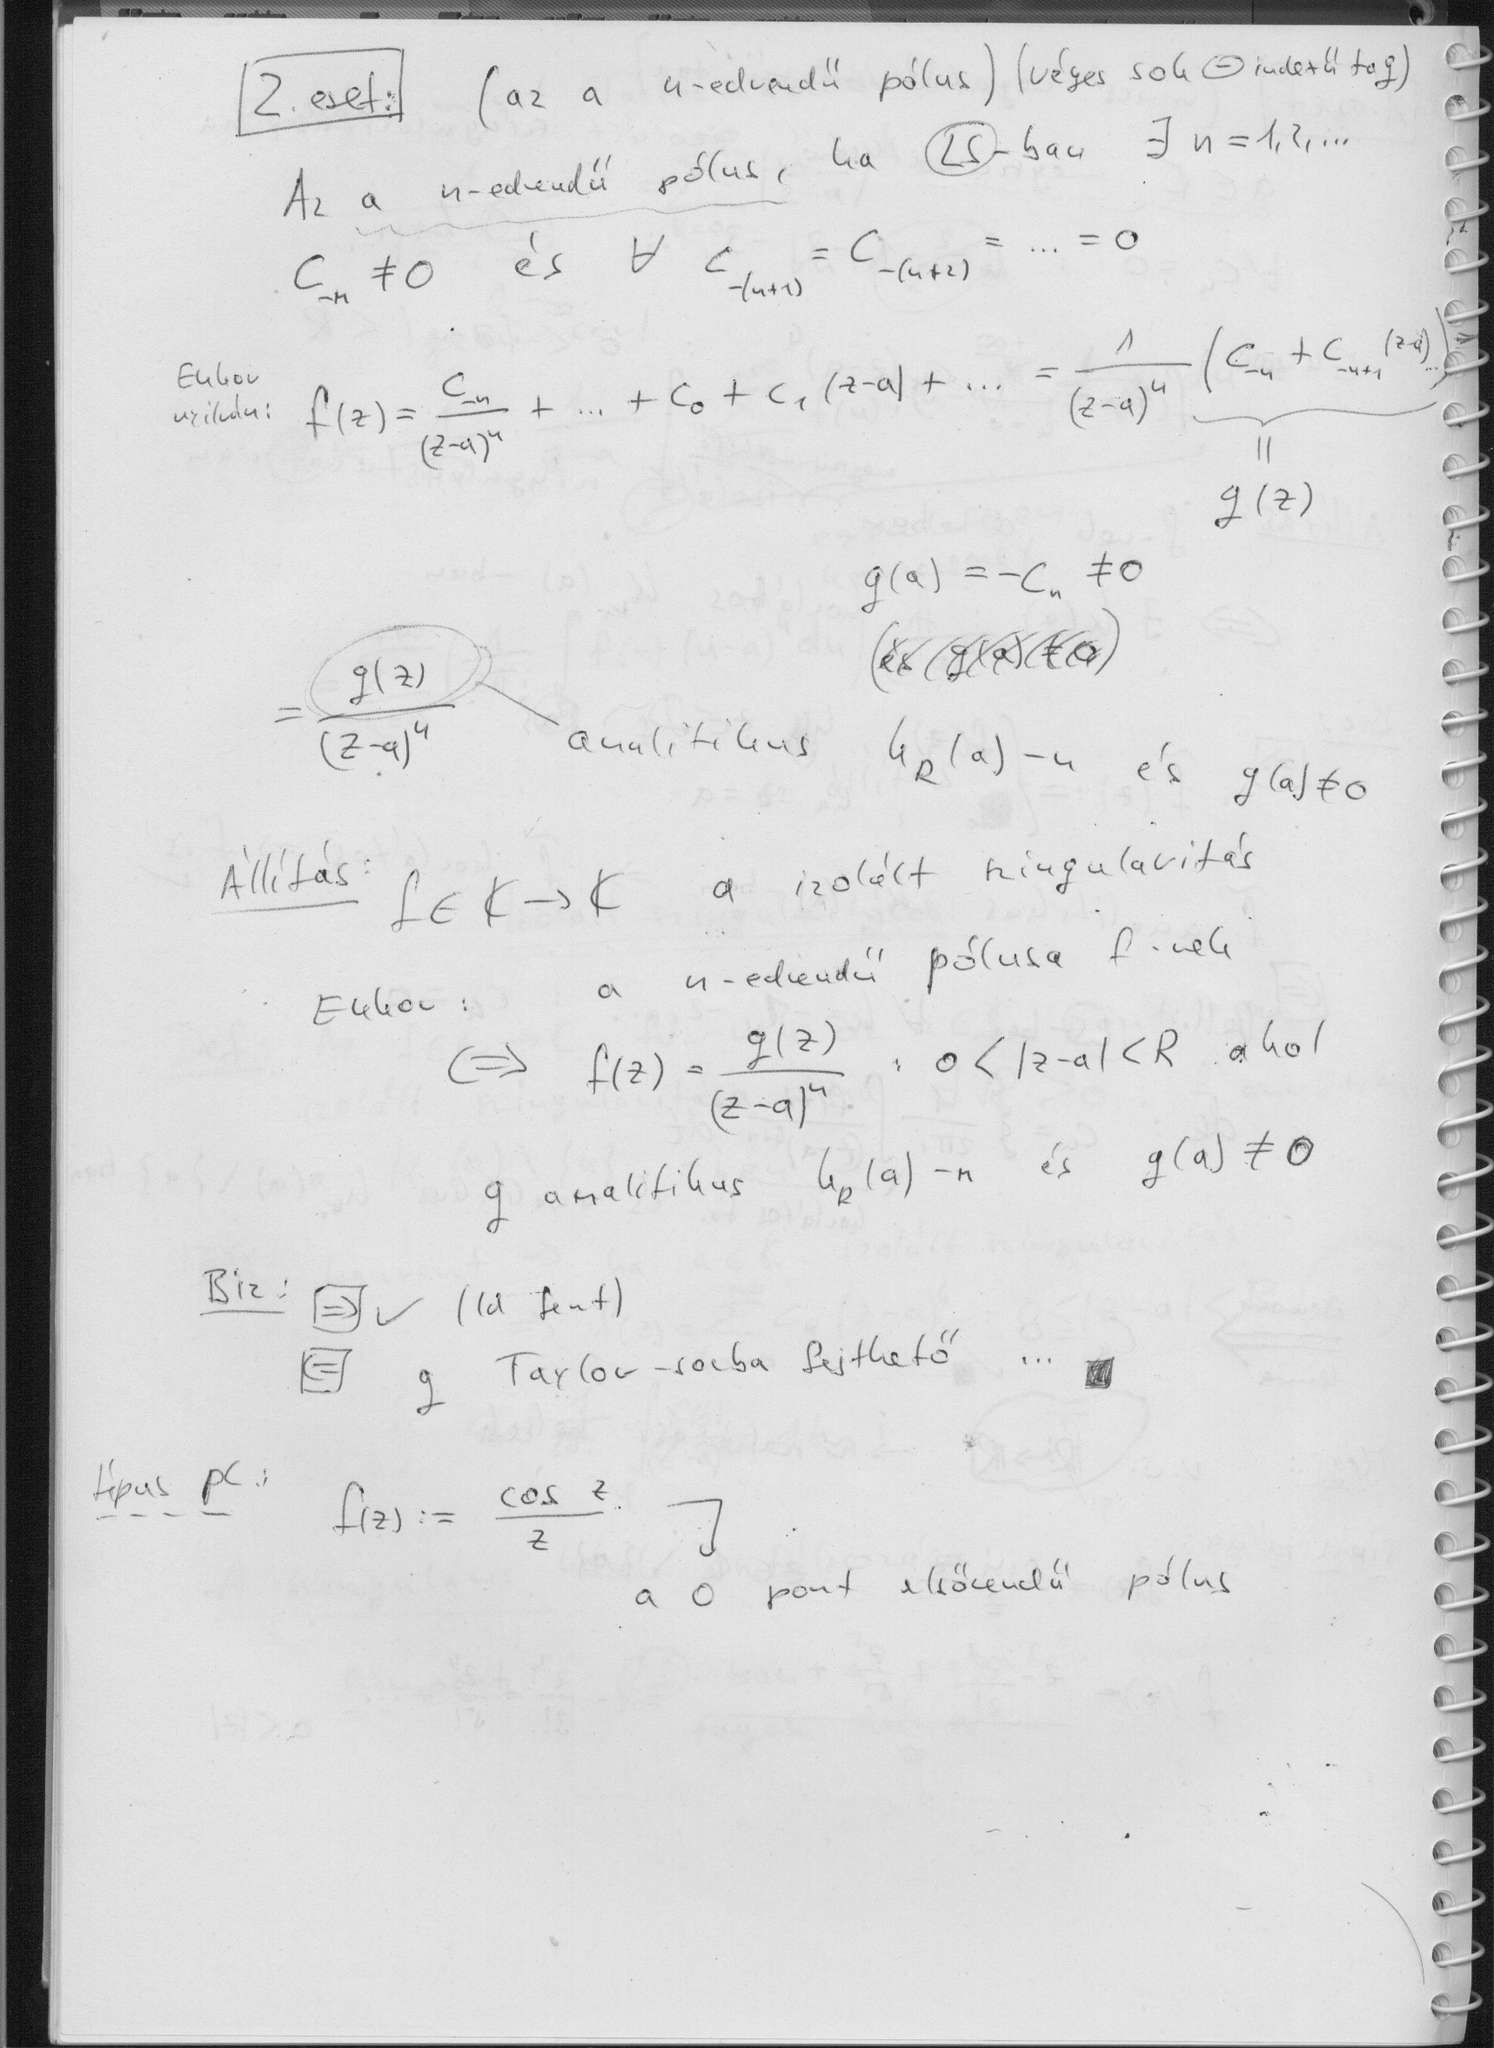 2. eset: (az a n-edrendű pólus) (véges sok ⊖ indexű tag)
Az a n-edrendű pólus, ha LS-ban ∃ n = 1, 2, ...
C_{-n} ≠ 0 és ∀ C_{-(n+1)} = C_{-(n+2)} = ... = 0
Ekkor
nyilván: f(z) = C_{-n}/(z-a)^n + ... + C_0 + C_1 (z-a) + ... = 1/(z-a)^n (C_{-n} + C_{-n+1} (z-a) ...)
||
g(z)
g(a) = -C_n ≠ 0
(és (g(a) ≠ 0)
= g(z)/(z-a)^n analitikus k_R(a)-n és g(a) ≠ 0
Állítás: f ∈ ℂ → ℂ a izolált szingularitás
Ekkor: a n-edrendű pólusa f-nek
⇔ f(z) = g(z)/(z-a)^n : 0 < |z-a| < R ahol
g analitikus k_R(a)-n és g(a) ≠ 0
Biz: ⇒ ✓ (ld fent)
⇐ g Taylor-sorba fejthető ... ■
típus pl:
f(z) := cos z / z
a 0 pont elsőrendű pólus